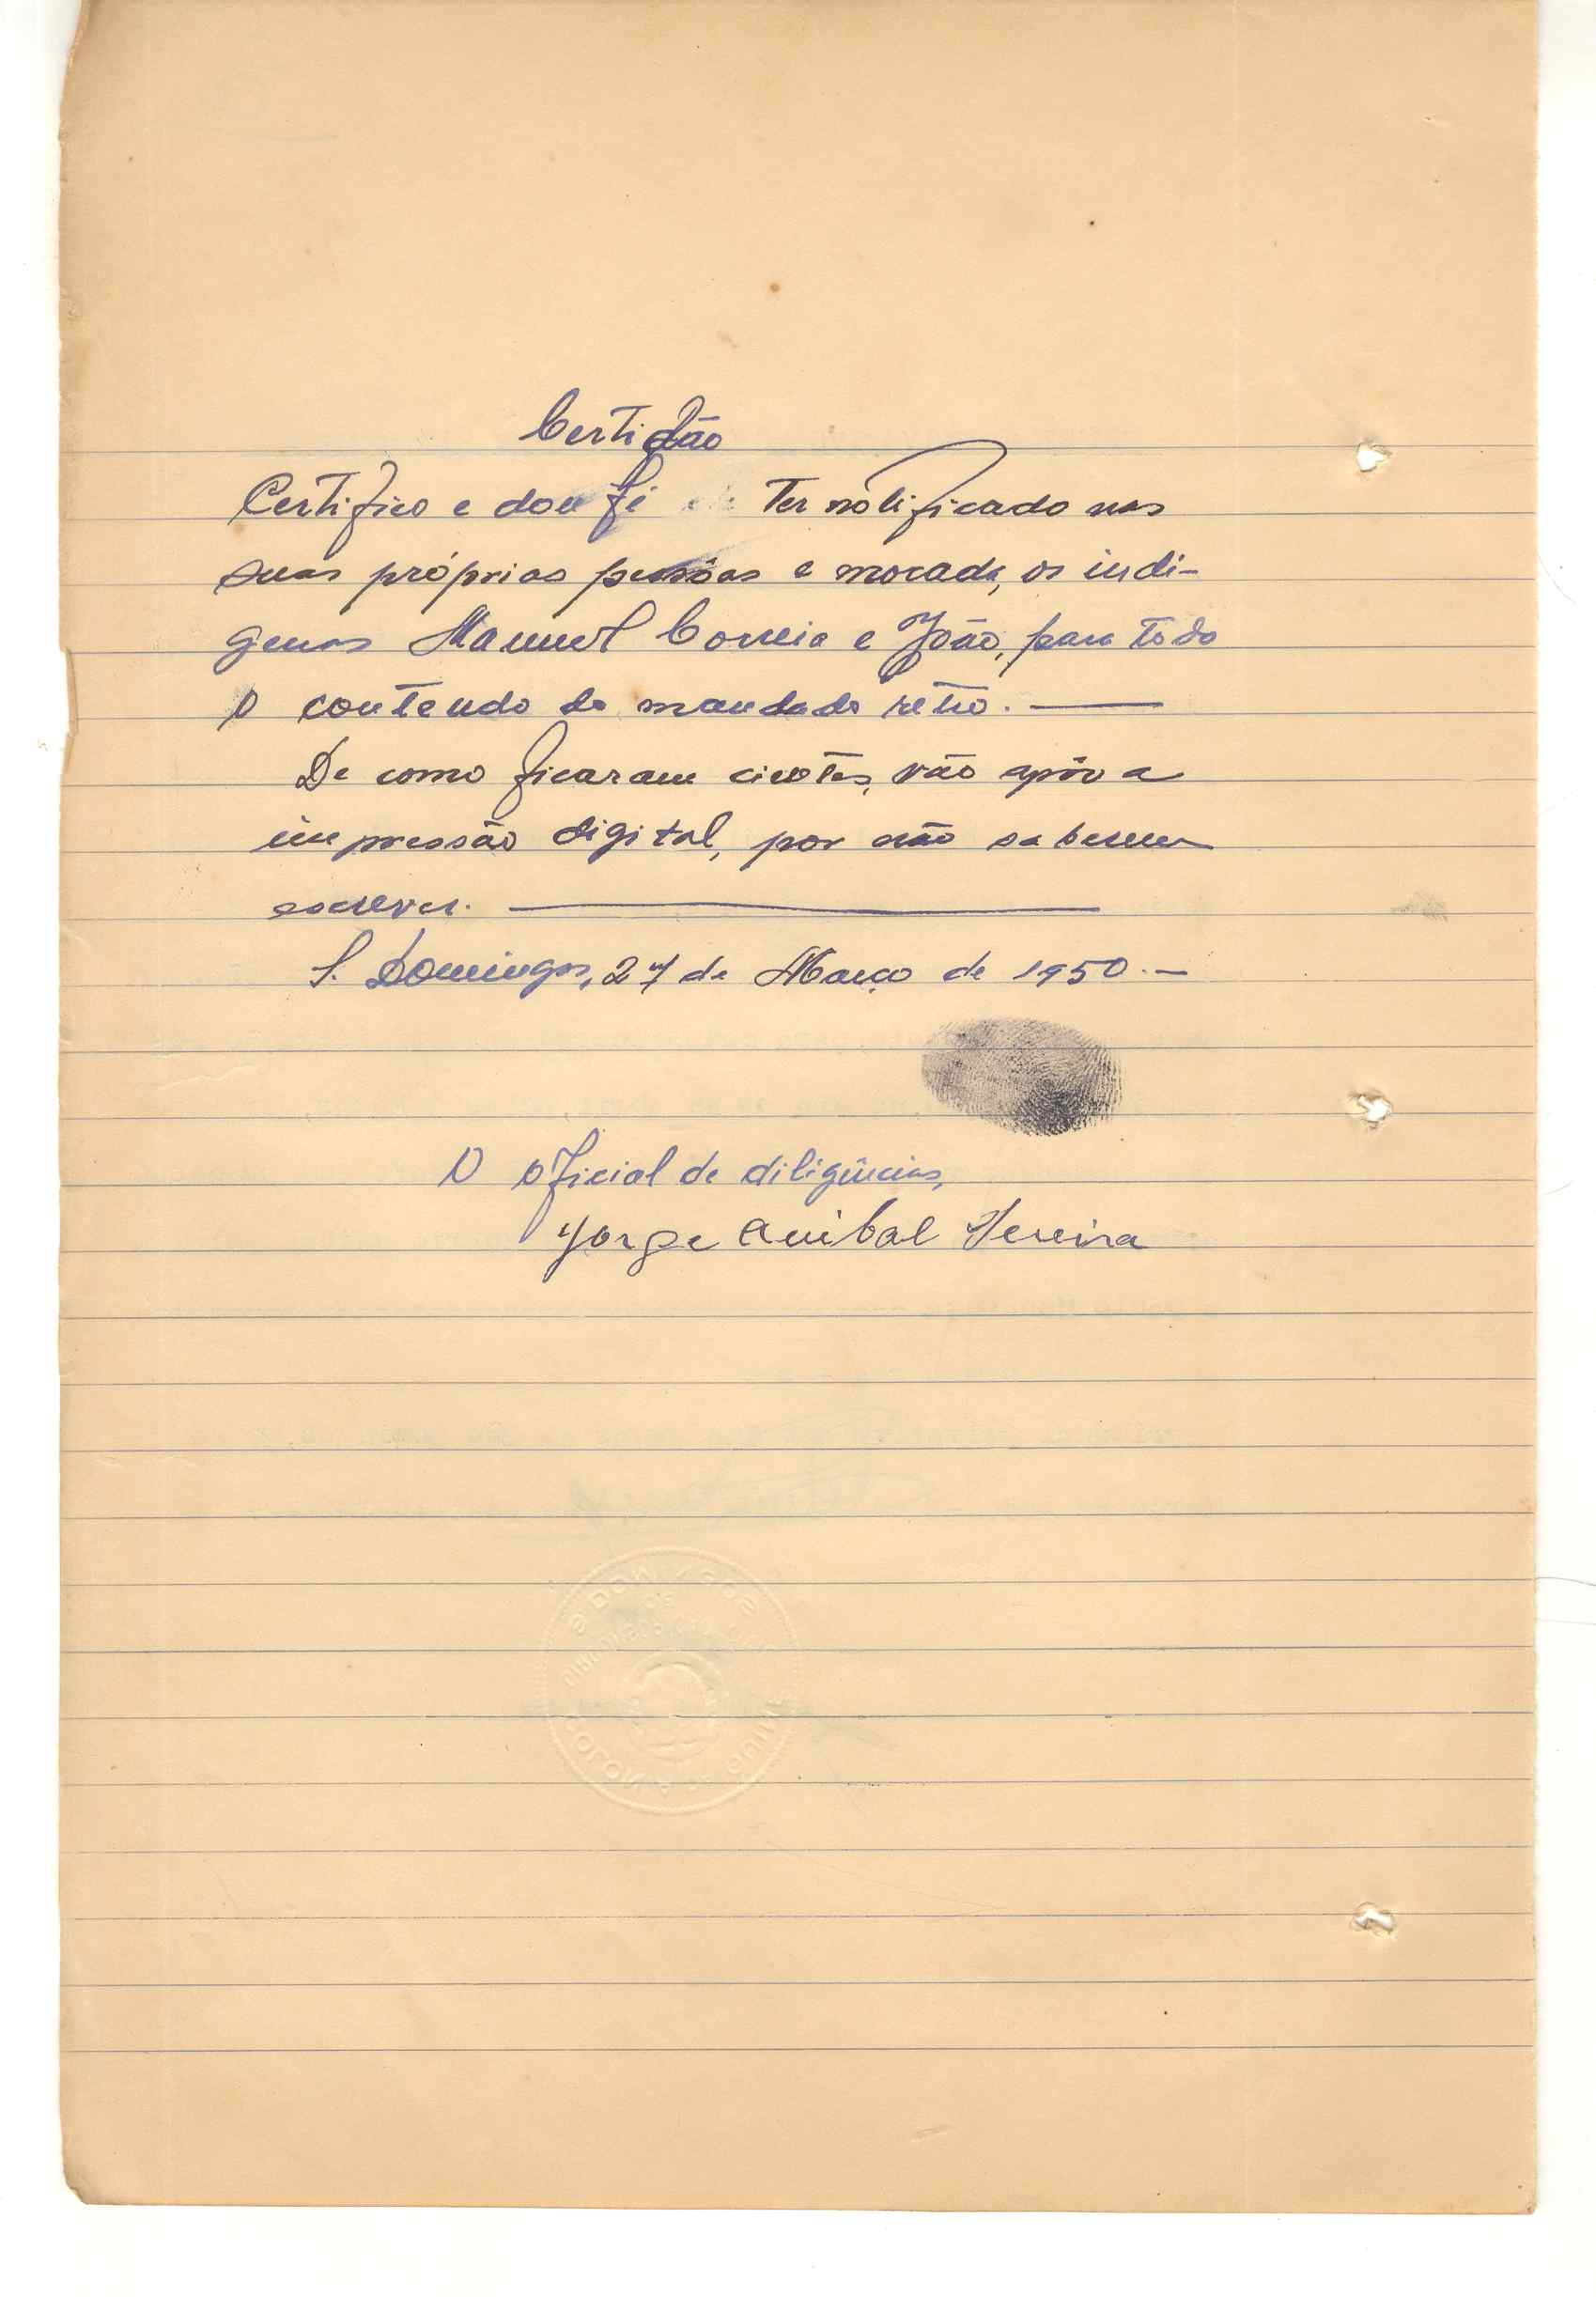 Certidão
Certifico e dou fé ter notificado nas
suas próprias pessôas e morada, os indi-
genas Manuel Correia e João, para todo
o conteudo do mandado retro. ———
De como ficaram cientes, vão apôr a
impressão digital, por não saberem
escrever. ———
S. Domingos, 27 de Março de 1950.—
O oficial de diligências,
Jorge Anibal Pereira